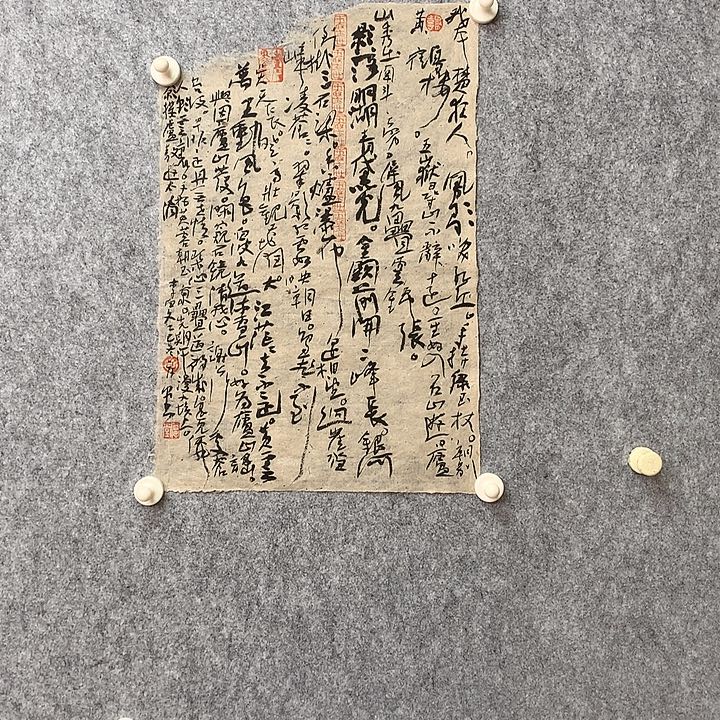 我本楚狂人。鳳歌笑孔丘。手持綠玉杖。朝別
黃鶴樓。五嶽尋仙不辭遠。一生好入名山遊。廬
山秀出南斗旁。屏風九疊雲錦張。
影落明湖青黛光。金闕前開二峰長。銀河
倒挂三石梁。香爐瀑布遙相望。迴崖沓
嶂凌蒼蒼。翠影紅霞映朝日。鳥飛不到
吳天長。登高壯觀天地間。大江茫茫去不還。黃雲
萬里動風色。白波九道流雪山。好為廬山謠。
興因廬山發。閒窺石鏡清我心。謝公行處蒼
苔沒。早服還丹無世情。琴心三疊道初成。遙見仙
人彩雲裏。手把芙蓉朝玉京。先期汗漫九垓上。
願接盧敖遊太清